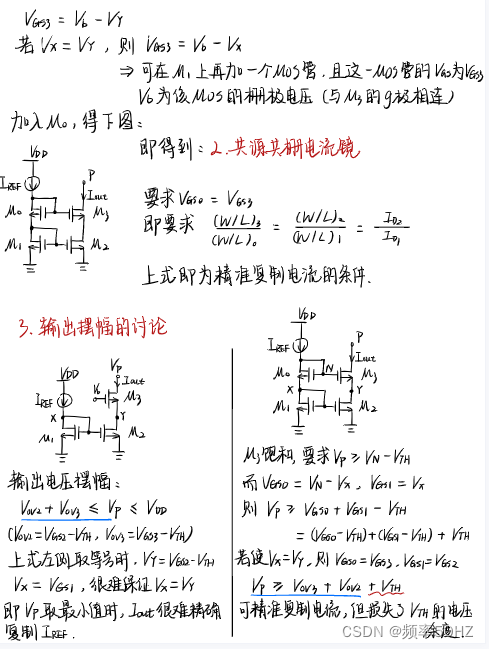 V_GS3 = V_b - V_Y
若 V_X = V_Y , 则 V_GS3 = V_b - V_X
⇒ 可在 M₁ 上再加一个MOS管, 且这一MOS管的 V_GS 为 V_GS3
V_b 为该MOS的栅极电压 (与M₃的g极相连)
加入M₀, 得下图:
即得到: 2. 共源共栅电流镜
V_DD
P
I_REF
I_out
M₀
M₃
M₁
M₂
要求 V_GS0 = V_GS3
即要求 (W/L)₃/(W/L)₀ = (W/L)₂/(W/L)₁ = I_D2/I_D1
上式即为精准复制电流的条件.
3. 输出摆幅的讨论
V_DD
V_P
I_out
V_b
M₃
I_REF
X
Y
M₁
M₂
输出电压摆幅:
V_OV2 + V_OV3 ≤ V_P ≤ V_DD
(V_OV2 = V_GS2 - V_TH, V_OV3 = V_GS3 - V_TH)
上式左侧取等号时, V_Y = V_GS2 - V_TH
V_X = V_GS1 , 很难保证 V_X = V_Y
即 V_P 取最小值时, I_out 很难精确
复制 I_REF .
V_DD
P
I_REF
I_out
M₀
N
M₃
X
Y
M₁
M₂
M₃饱和, 要求 V_P ≥ V_N - V_TH
而 V_GS0 = V_N - V_X , V_GS1 = V_X
则 V_P ≥ V_GS0 + V_GS1 - V_TH
= (V_GS0 - V_TH) + (V_GS1 - V_TH) + V_TH
若使 V_X = V_Y , 则 V_GS0 = V_GS3 , V_GS1 = V_GS2
V_P ≥ V_OV3 + V_OV2 + V_TH
可精准复制电流, 但损失了 V_TH 的电压
余度.